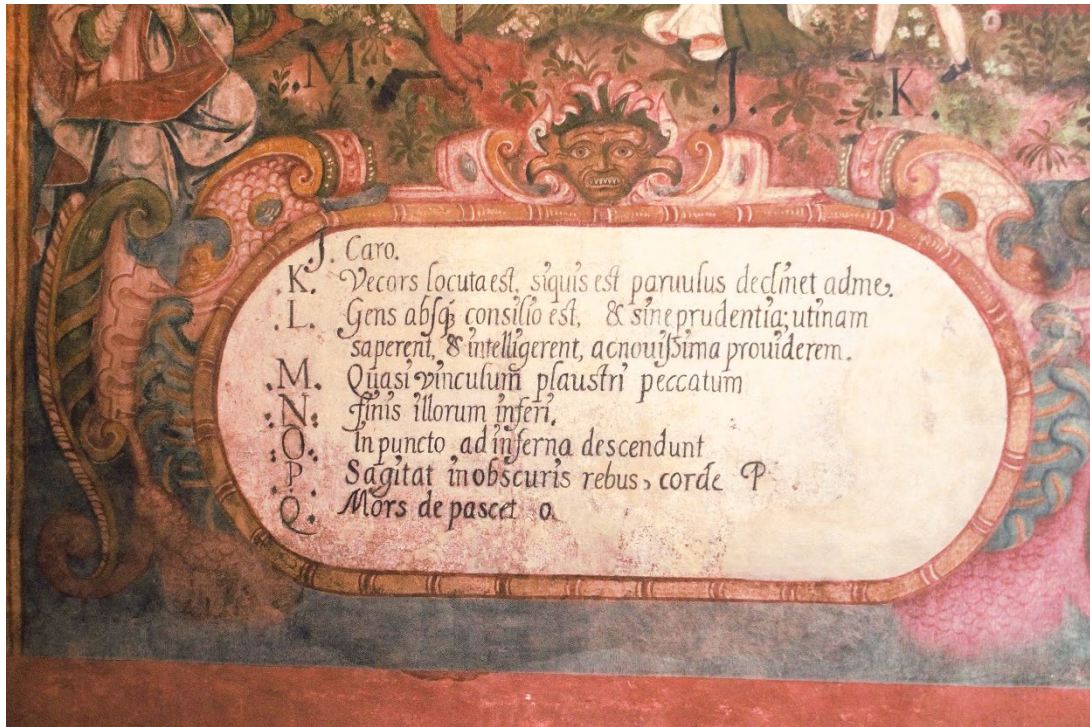 .M.
J. .K.
J. Caro.
.K. Vecors locuta est, siquis est paruulus declinet adme.
.L. Gens absq; consilio est, & sine prudentia; utinam
saperent, & intelligerent, acnouissima prouiderem.
.M. Quasi vinculum plaustri peccatum
.N. finis illorum inferi.
.O. In puncto ad inferna descendunt
.P. Sagitat in obscuris rebus, corde P
Q. Mors de pascet o.